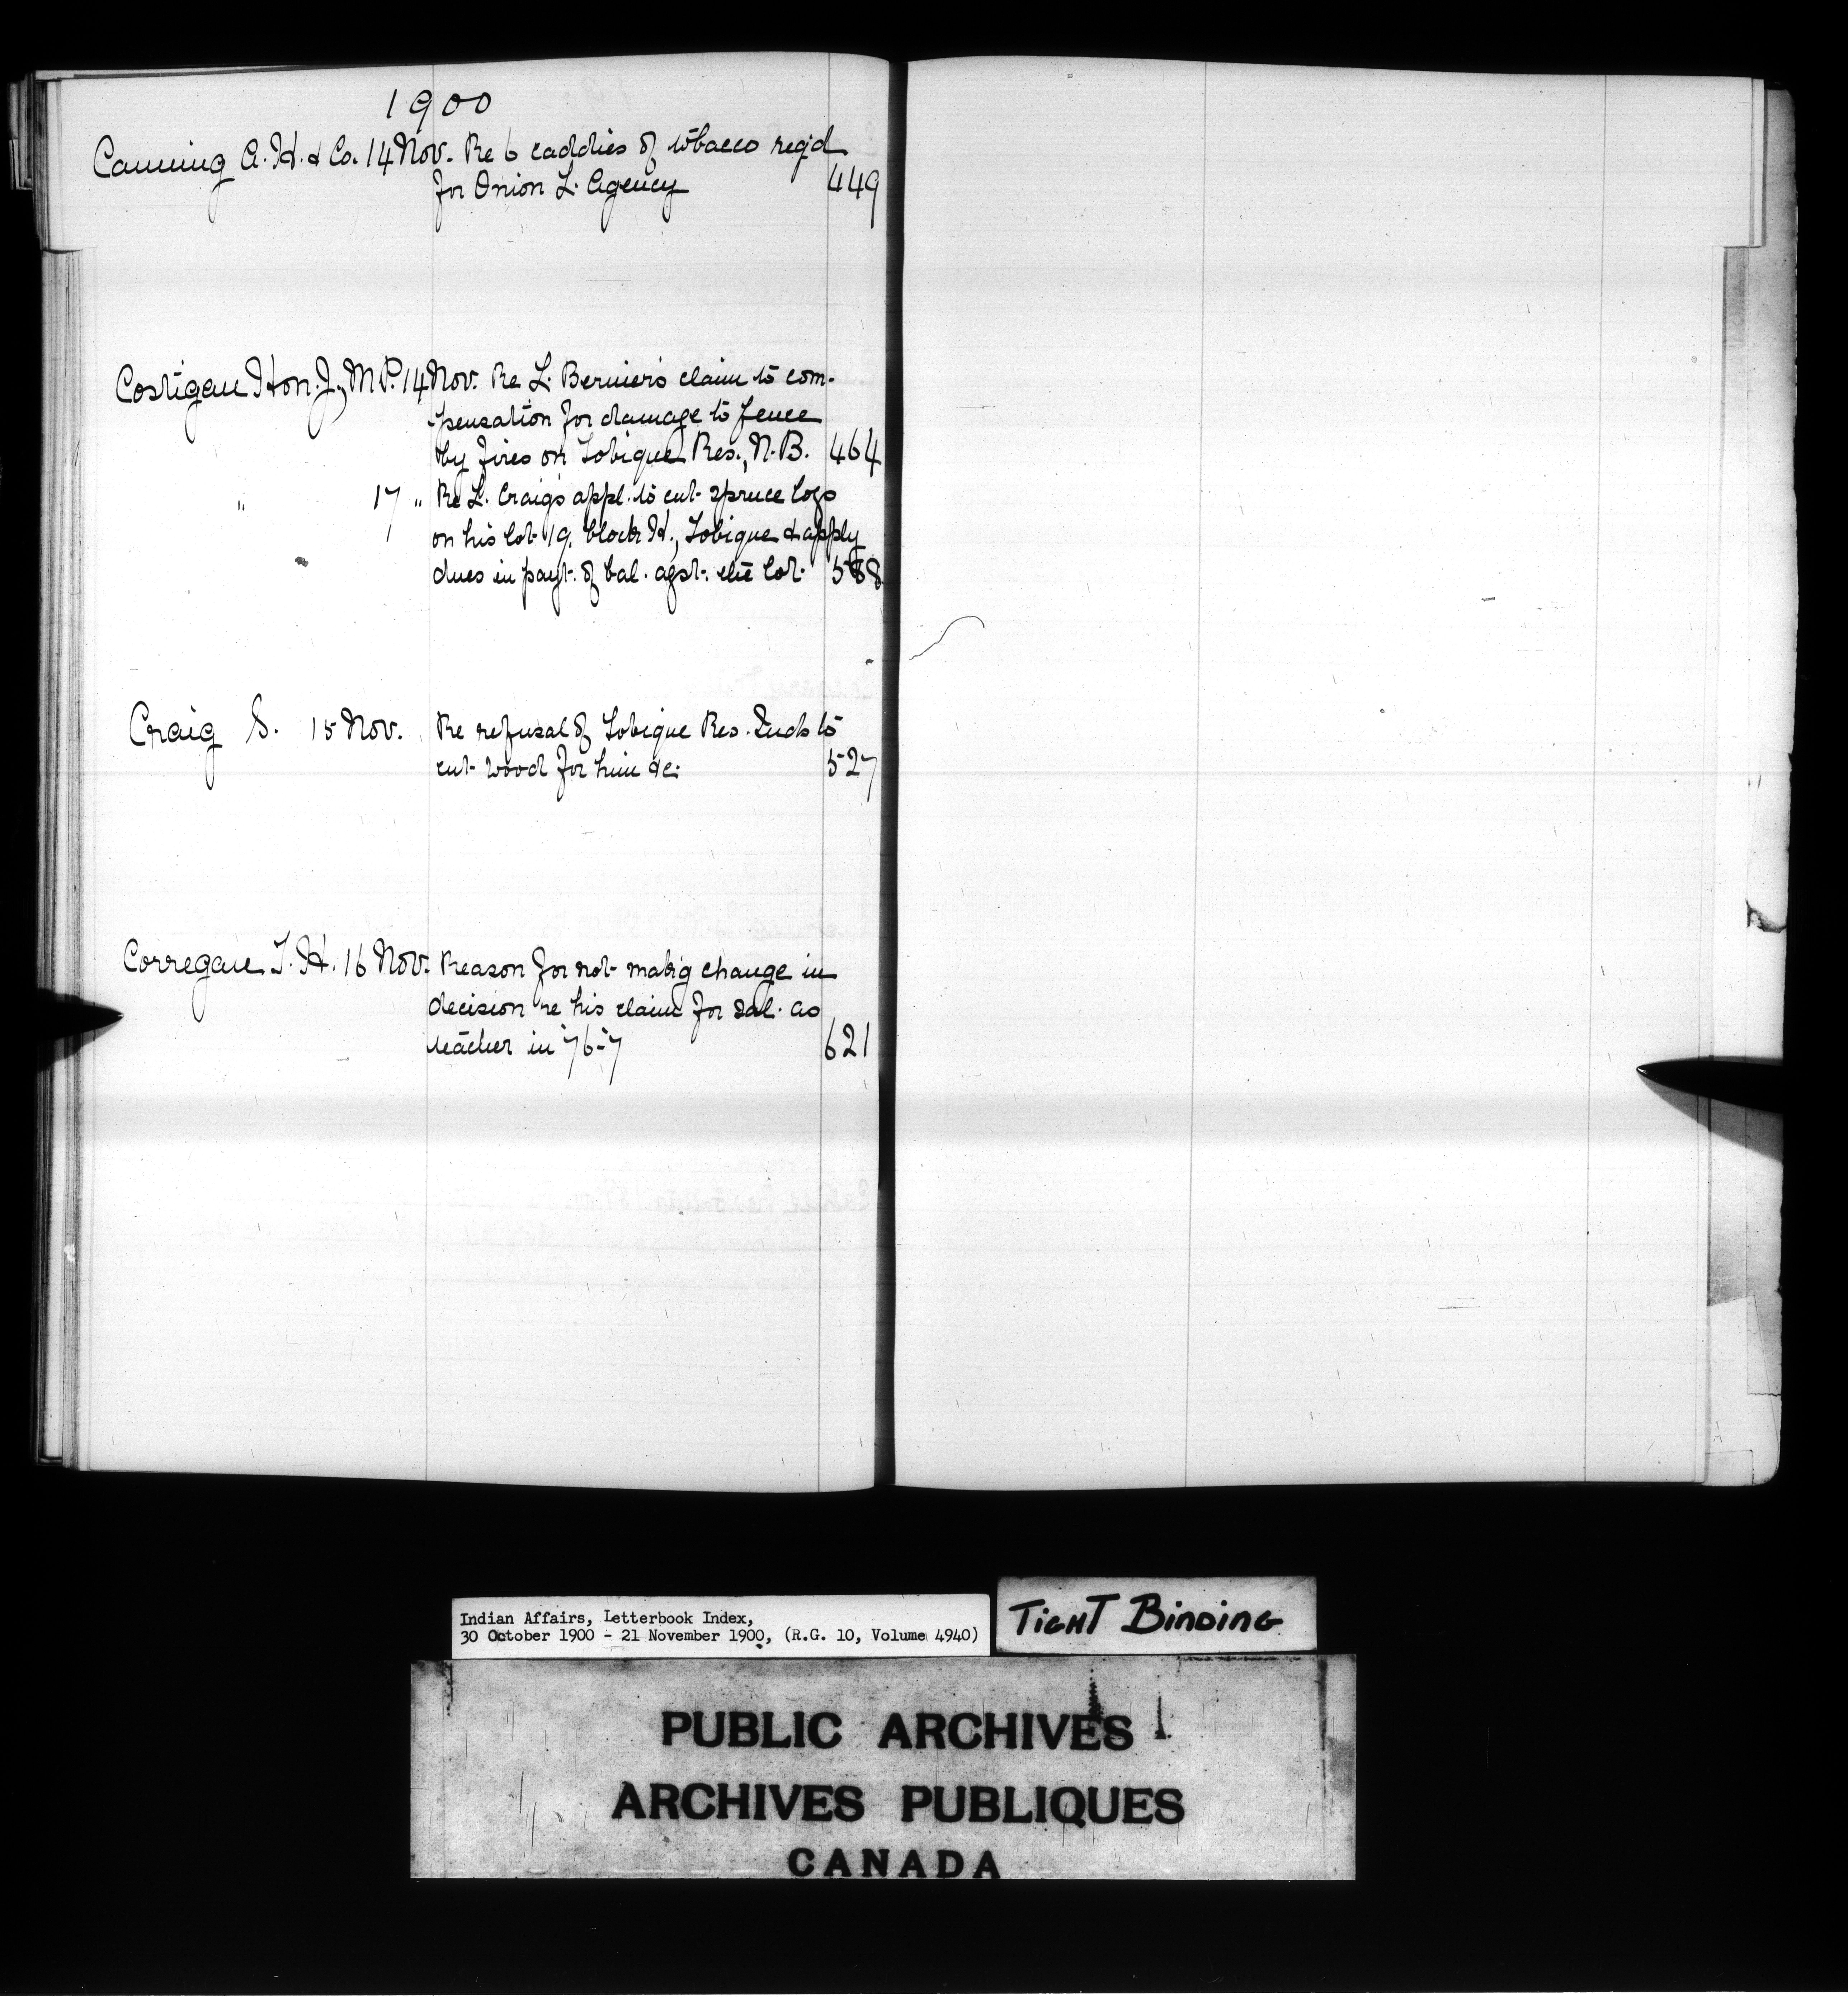 1900
Canning A. H. & Co. 14 Nov. Re 6 caddies of tobacco req'd
for Onion L. Agency 449
Costigan Hon. J., M.P. 14 Nov. Re L. Bernier's claim to com-
pensation for damage to fence
by fires on Tobique Res., N.B. 464
" 17 " Re L. Craig's appl. to cut spruce logs
on his lot 19. block H., Tobique & apply
dues in payt. of bal. agst. the lot. 588
Craig S. 15 Nov. Re refusal of Tobique Res. Inds to
cut wood for him &c. 527
Corregan T. H. 16 Nov. Reason for not mak'g change in
decision re his claim for sal. as
teacher in '76-'7 621
Indian Affairs, Letterbook Index,
30 October 1900 - 21 November 1900, (R.G. 10, Volume 4940)
TIGHT BINDING
PUBLIC ARCHIVES
ARCHIVES PUBLIQUES
CANADA